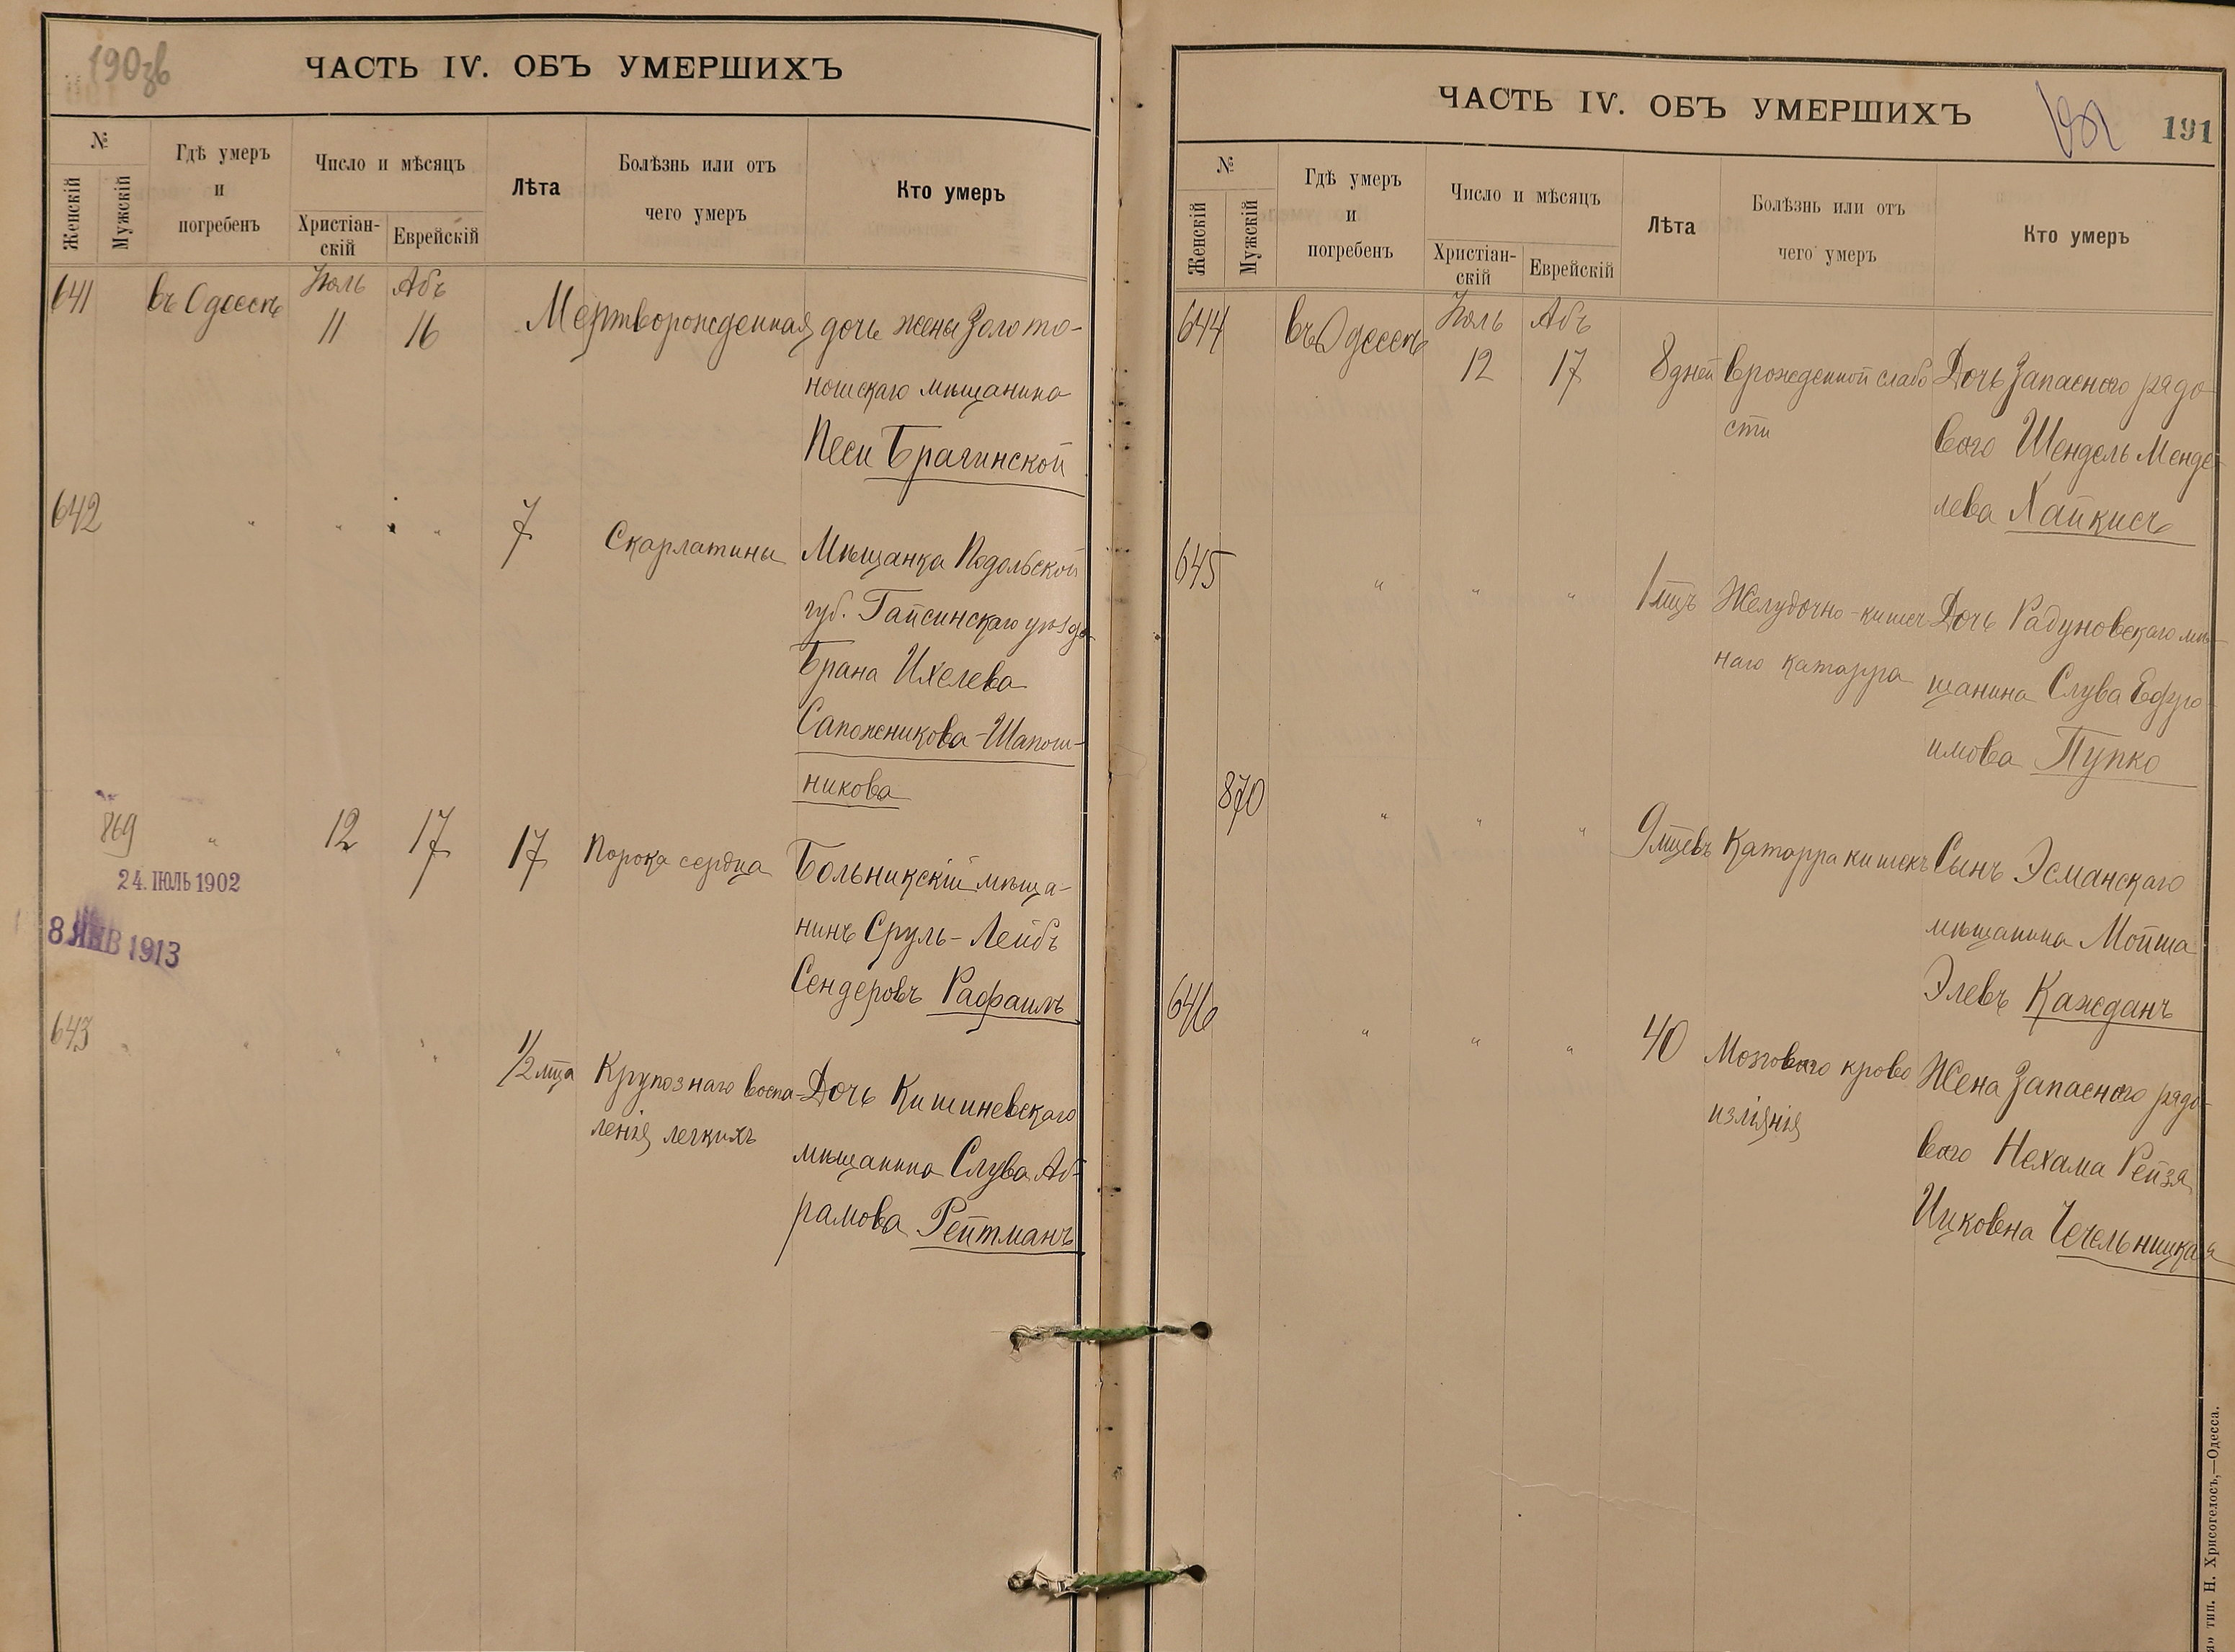 190зв
ЧАСТЬ IV. ОБЪ УМЕРШИХЪ
№
Женскій
Мужскій
Гдѣ умеръ
и
погребенъ
Число и мѣсяцъ
Христіан-
скій
Еврейскій
Лѣта
Болѣзнь или отъ
чего умеръ
Кто умеръ
641 въ Одессѣ Іюль 11 Абъ 16 Мертворожденная дочь жены Золото-
ношскаго мѣщанина
Песи Брагинской
642 " " " 7 Скарлатины Мѣщанка Подольской
губ. Гайсинскаго уѣзда
Брана Ихелева
Сапожникова-Шапош-
никова
869 " 12 17 17 Порока сердца Больникскій мѣща-
нинъ Сруль-Лейбъ
Сендеровъ Рафаилъ
24. ІЮЛЬ 1902
8 ЯНВ 1913
643 " " " 1/2 мца Крупознаго воспа- Дочь Кишиневскаго
ленія легкихъ мѣщанина Слува Аб-
рамова Рейтманъ
ЧАСТЬ IV. ОБЪ УМЕРШИХЪ
191
№
Женскій
Мужскій
Гдѣ умеръ
и
погребенъ
Число и мѣсяцъ
Христіан-
скій
Еврейскій
Лѣта
Болѣзнь или отъ
чего умеръ
Кто умеръ
644 въ Одессѣ Іюль 12 Абъ 17 8 дней врожденной слабо Дочь Запасного рядо
сти вого Шендель Менде
лева Хайкисъ
645 " " " 1 мцъ Желудочно-кишеч Дочь Радуновскаго мѣ-
наго катарра щанина Слува Ефро-
имова Пупко
870 " " " 9 мцевъ Катарра кишекъ Сынъ Эсманскаго
мѣщанина Мойша
Элевъ Кажданъ
646 " " " 40 Мозгового крово Жена Запасного рядо-
изліянія вого Нехама Рейзя
Ицковна Чечельницкая
тип. Н. Хрисогелосъ,—Одесса.